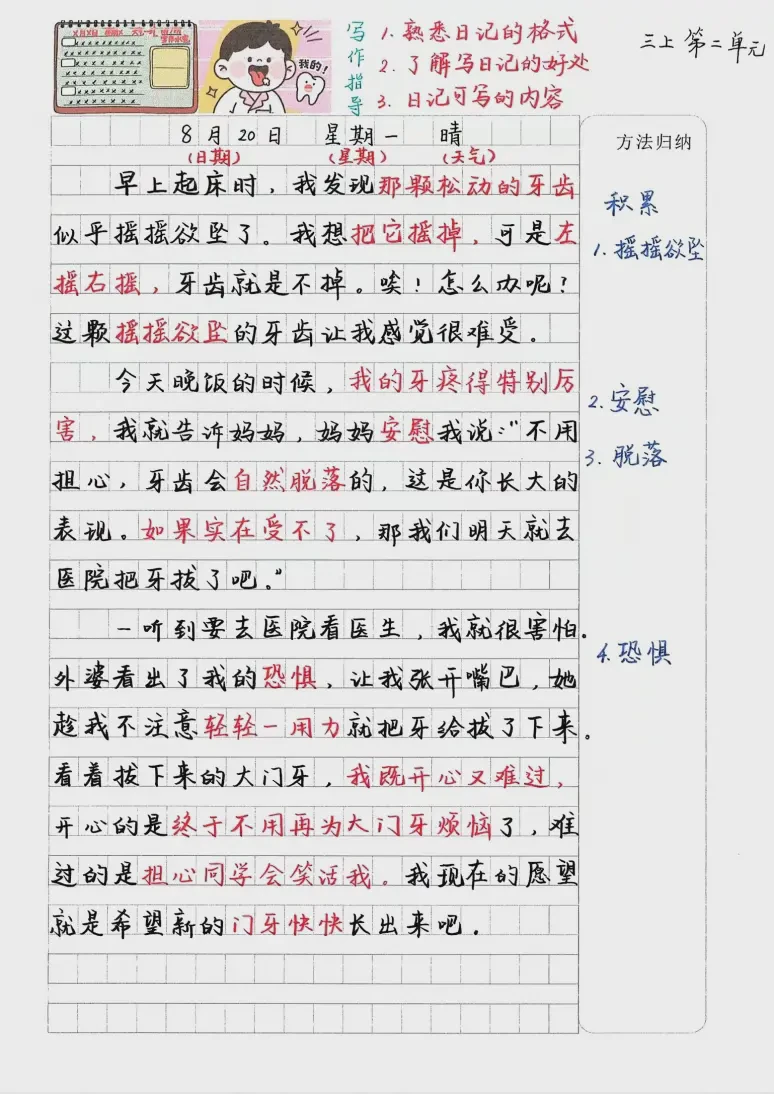 写作指导
1. 熟悉日记的格式
2. 了解写日记的好处
3. 日记可写的内容
三上 第二单元
我的!
8月20日 星期一 晴
(日期) (星期) (天气)
早上起床时,我发现那颗松动的牙齿
似乎摇摇欲坠了。我想把它摇掉,可是左
摇右摇,牙齿就是不掉。唉!怎么办呢?
这颗摇摇欲坠的牙齿让我感觉很难受。
今天晚饭的时候,我的牙疼得特别厉
害,我就告诉妈妈,妈妈安慰我说:“不用
担心,牙齿会自然脱落的,这是你长大的
表现。如果实在受不了,那我们明天就去
医院把牙拔了吧。”
一听到要去医院看医生,我就很害怕.
外婆看出了我的恐惧,让我张开嘴巴,她
趁我不注意轻轻一用力就把牙给拔了下来。
看着拔下来的大门牙,我既开心又难过,
开心的是终于不用再为大门牙烦恼了,难
过的是担心同学会笑话我。我现在的愿望
就是希望新的门牙快快长出来吧.
方法归纳
积累
1. 摇摇欲坠
2. 安慰
3. 脱落
4. 恐惧